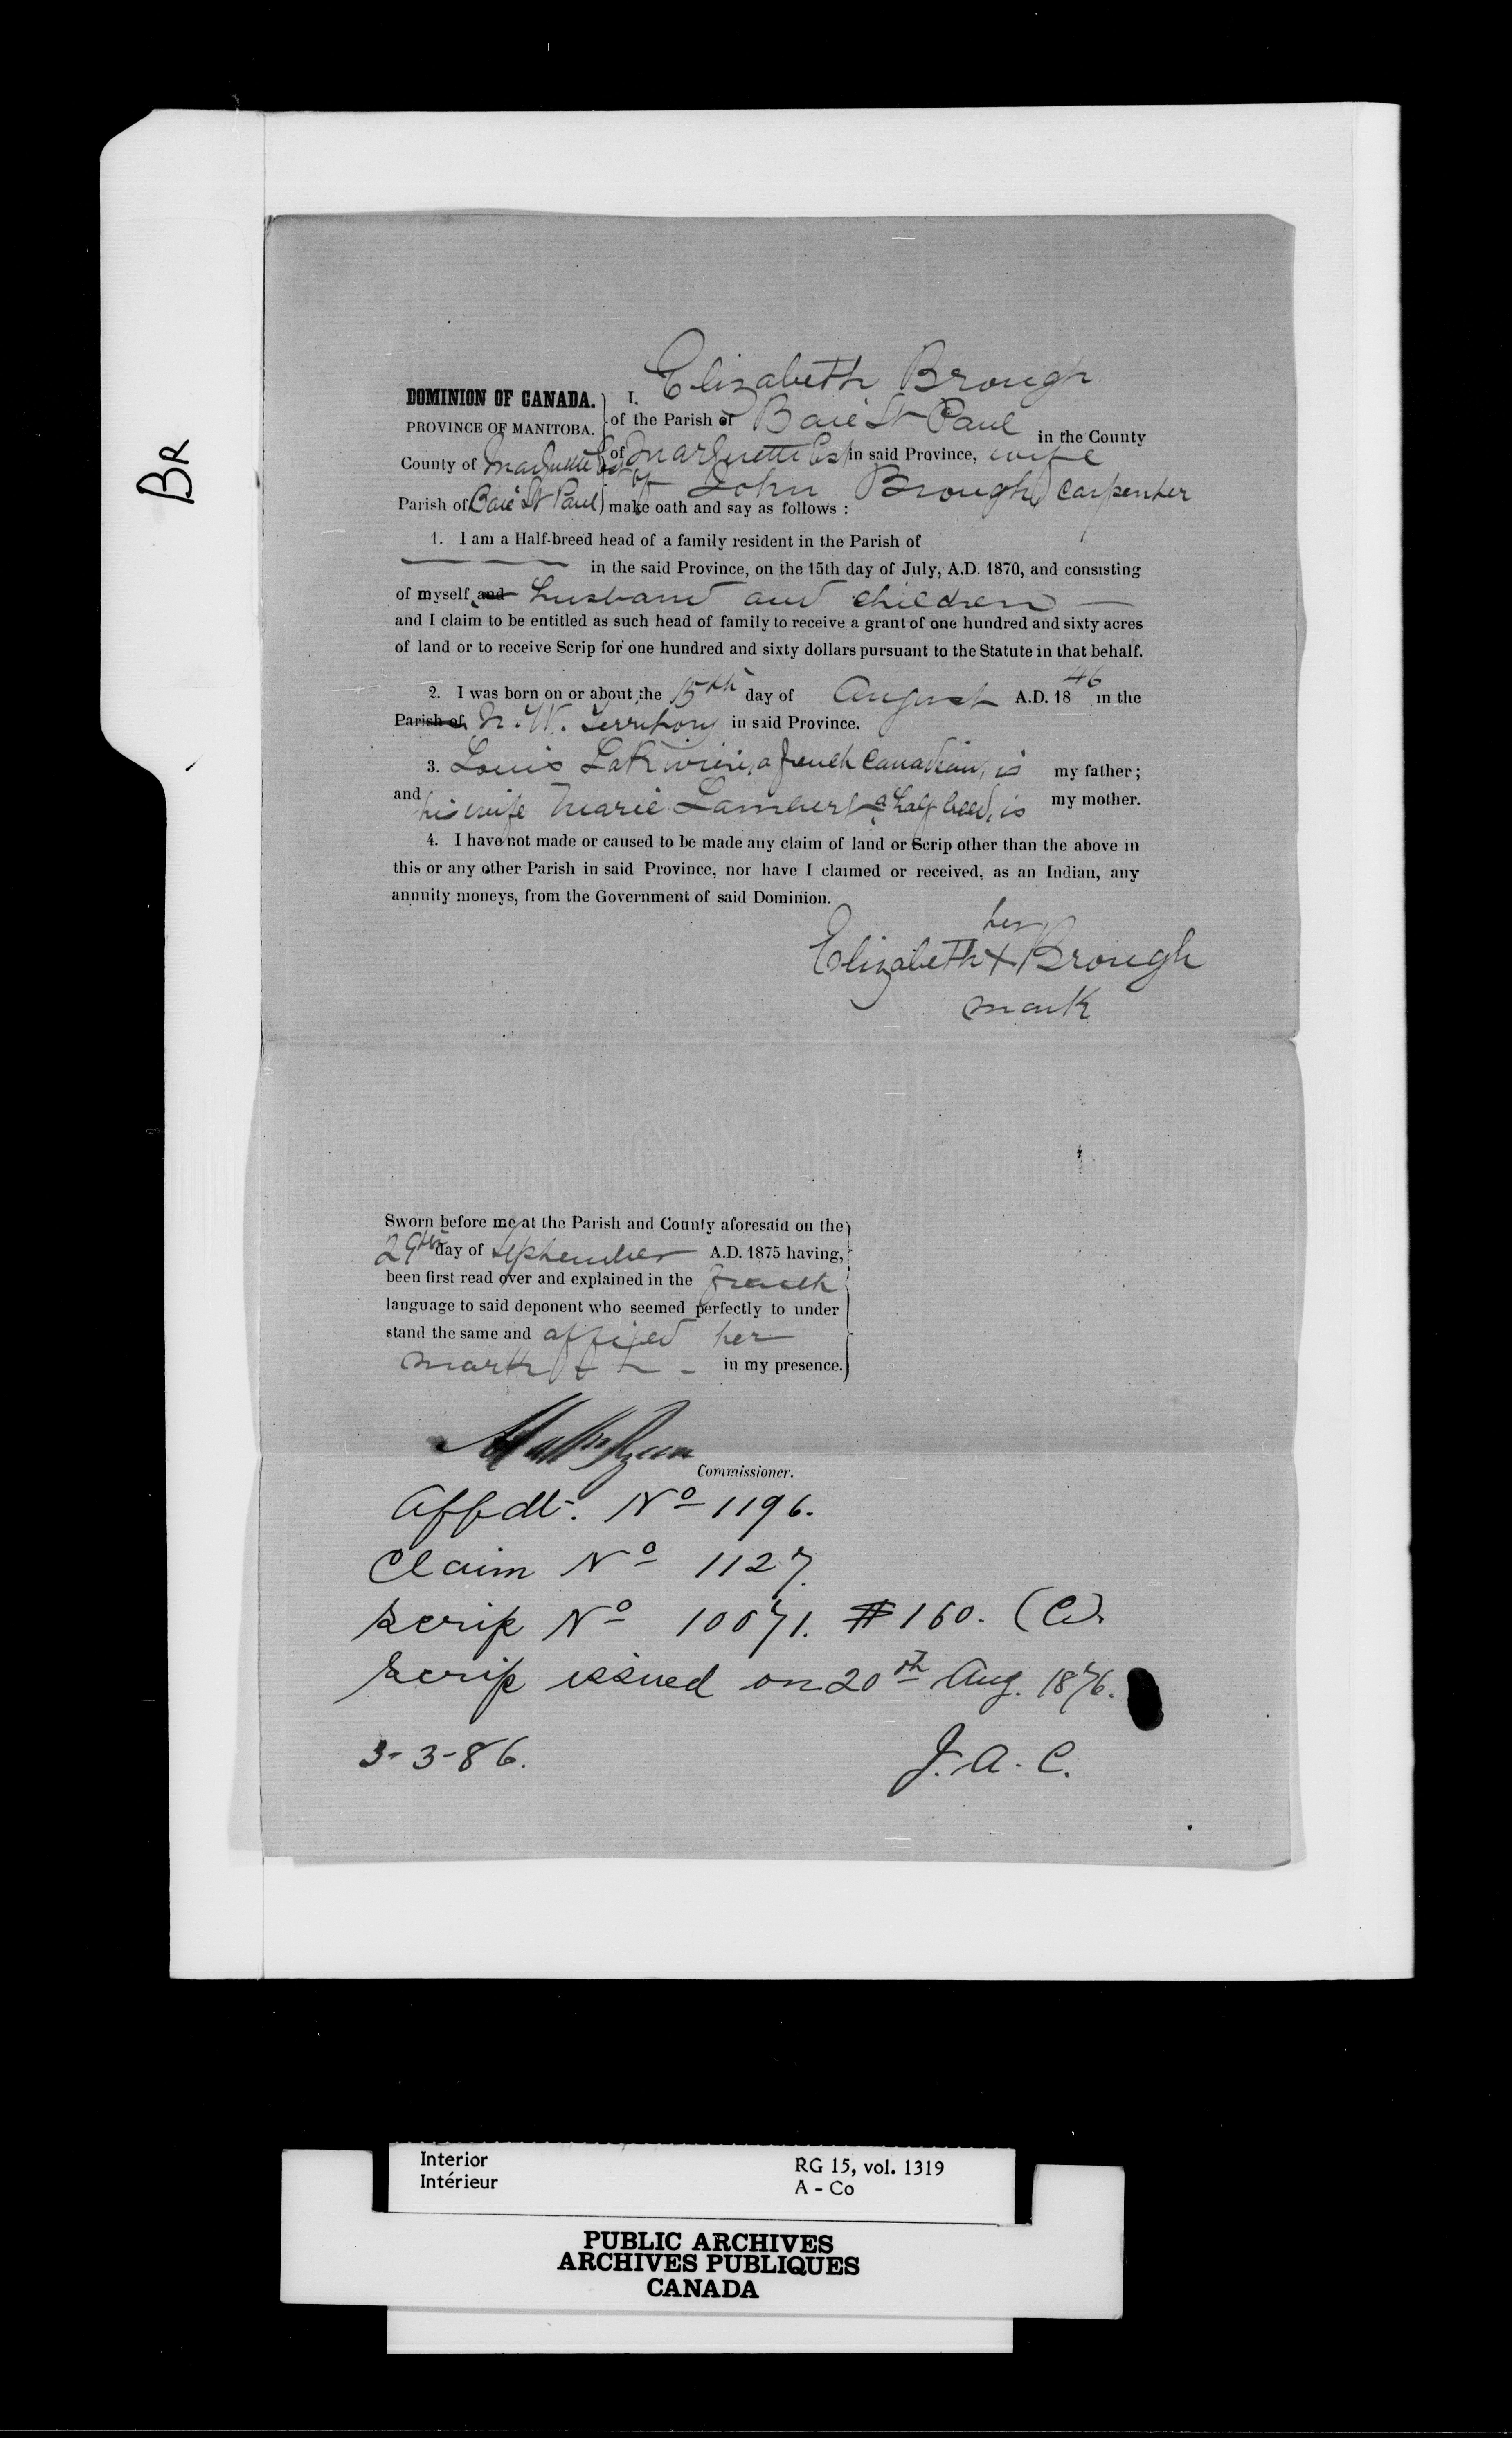 BR
I, Elizabeth Brough
DOMINION OF CANADA.
PROVINCE OF MANITOBA.
County of Marquette Est
Parish of Baie St Paul
of the Parish of Baie St Paul in the County
of Marquette Est in said Province, wife
of John Brough, Carpenter
make oath and say as follows :
1. I am a Half-breed head of a family resident in the Parish of
in the said Province, on the 15th day of July, A.D. 1870, and consisting
of myself and husband and children
and I claim to be entitled as such head of family to receive a grant of one hundred and sixty acres
of land or to receive Scrip for one hundred and sixty dollars pursuant to the Statute in that behalf.
2. I was born on or about the 15th day of August A.D. 1846 in the
Parish of N. W. Territory in said Province.
3. Louis Lariviere, a french Canadian, is my father;
and his wife Marie Lambert a half breed, is my mother.
4. I have not made or caused to be made any claim of land or Scrip other than the above in
this or any other Parish in said Province, nor have I claimed or received, as an Indian, any
annuity moneys, from the Government of said Dominion.
her
Elizabeth X Brough
mark
Sworn before me at the Parish and County aforesaid on the
29th day of September A.D. 1875 having,
been first read over and explained in the french
language to said deponent who seemed perfectly to under
stand the same and affixed her
mark in my presence.
Ryan
Commissioner.
Affdt. No 1196.
Claim No 1127.
Scrip No 10071. $160. (C).
Scrip issued on 20th Aug. 1876.
3-3-86. J. A. C.
Interior
Intérieur
RG 15, vol. 1319
A - Co
PUBLIC ARCHIVES
ARCHIVES PUBLIQUES
CANADA